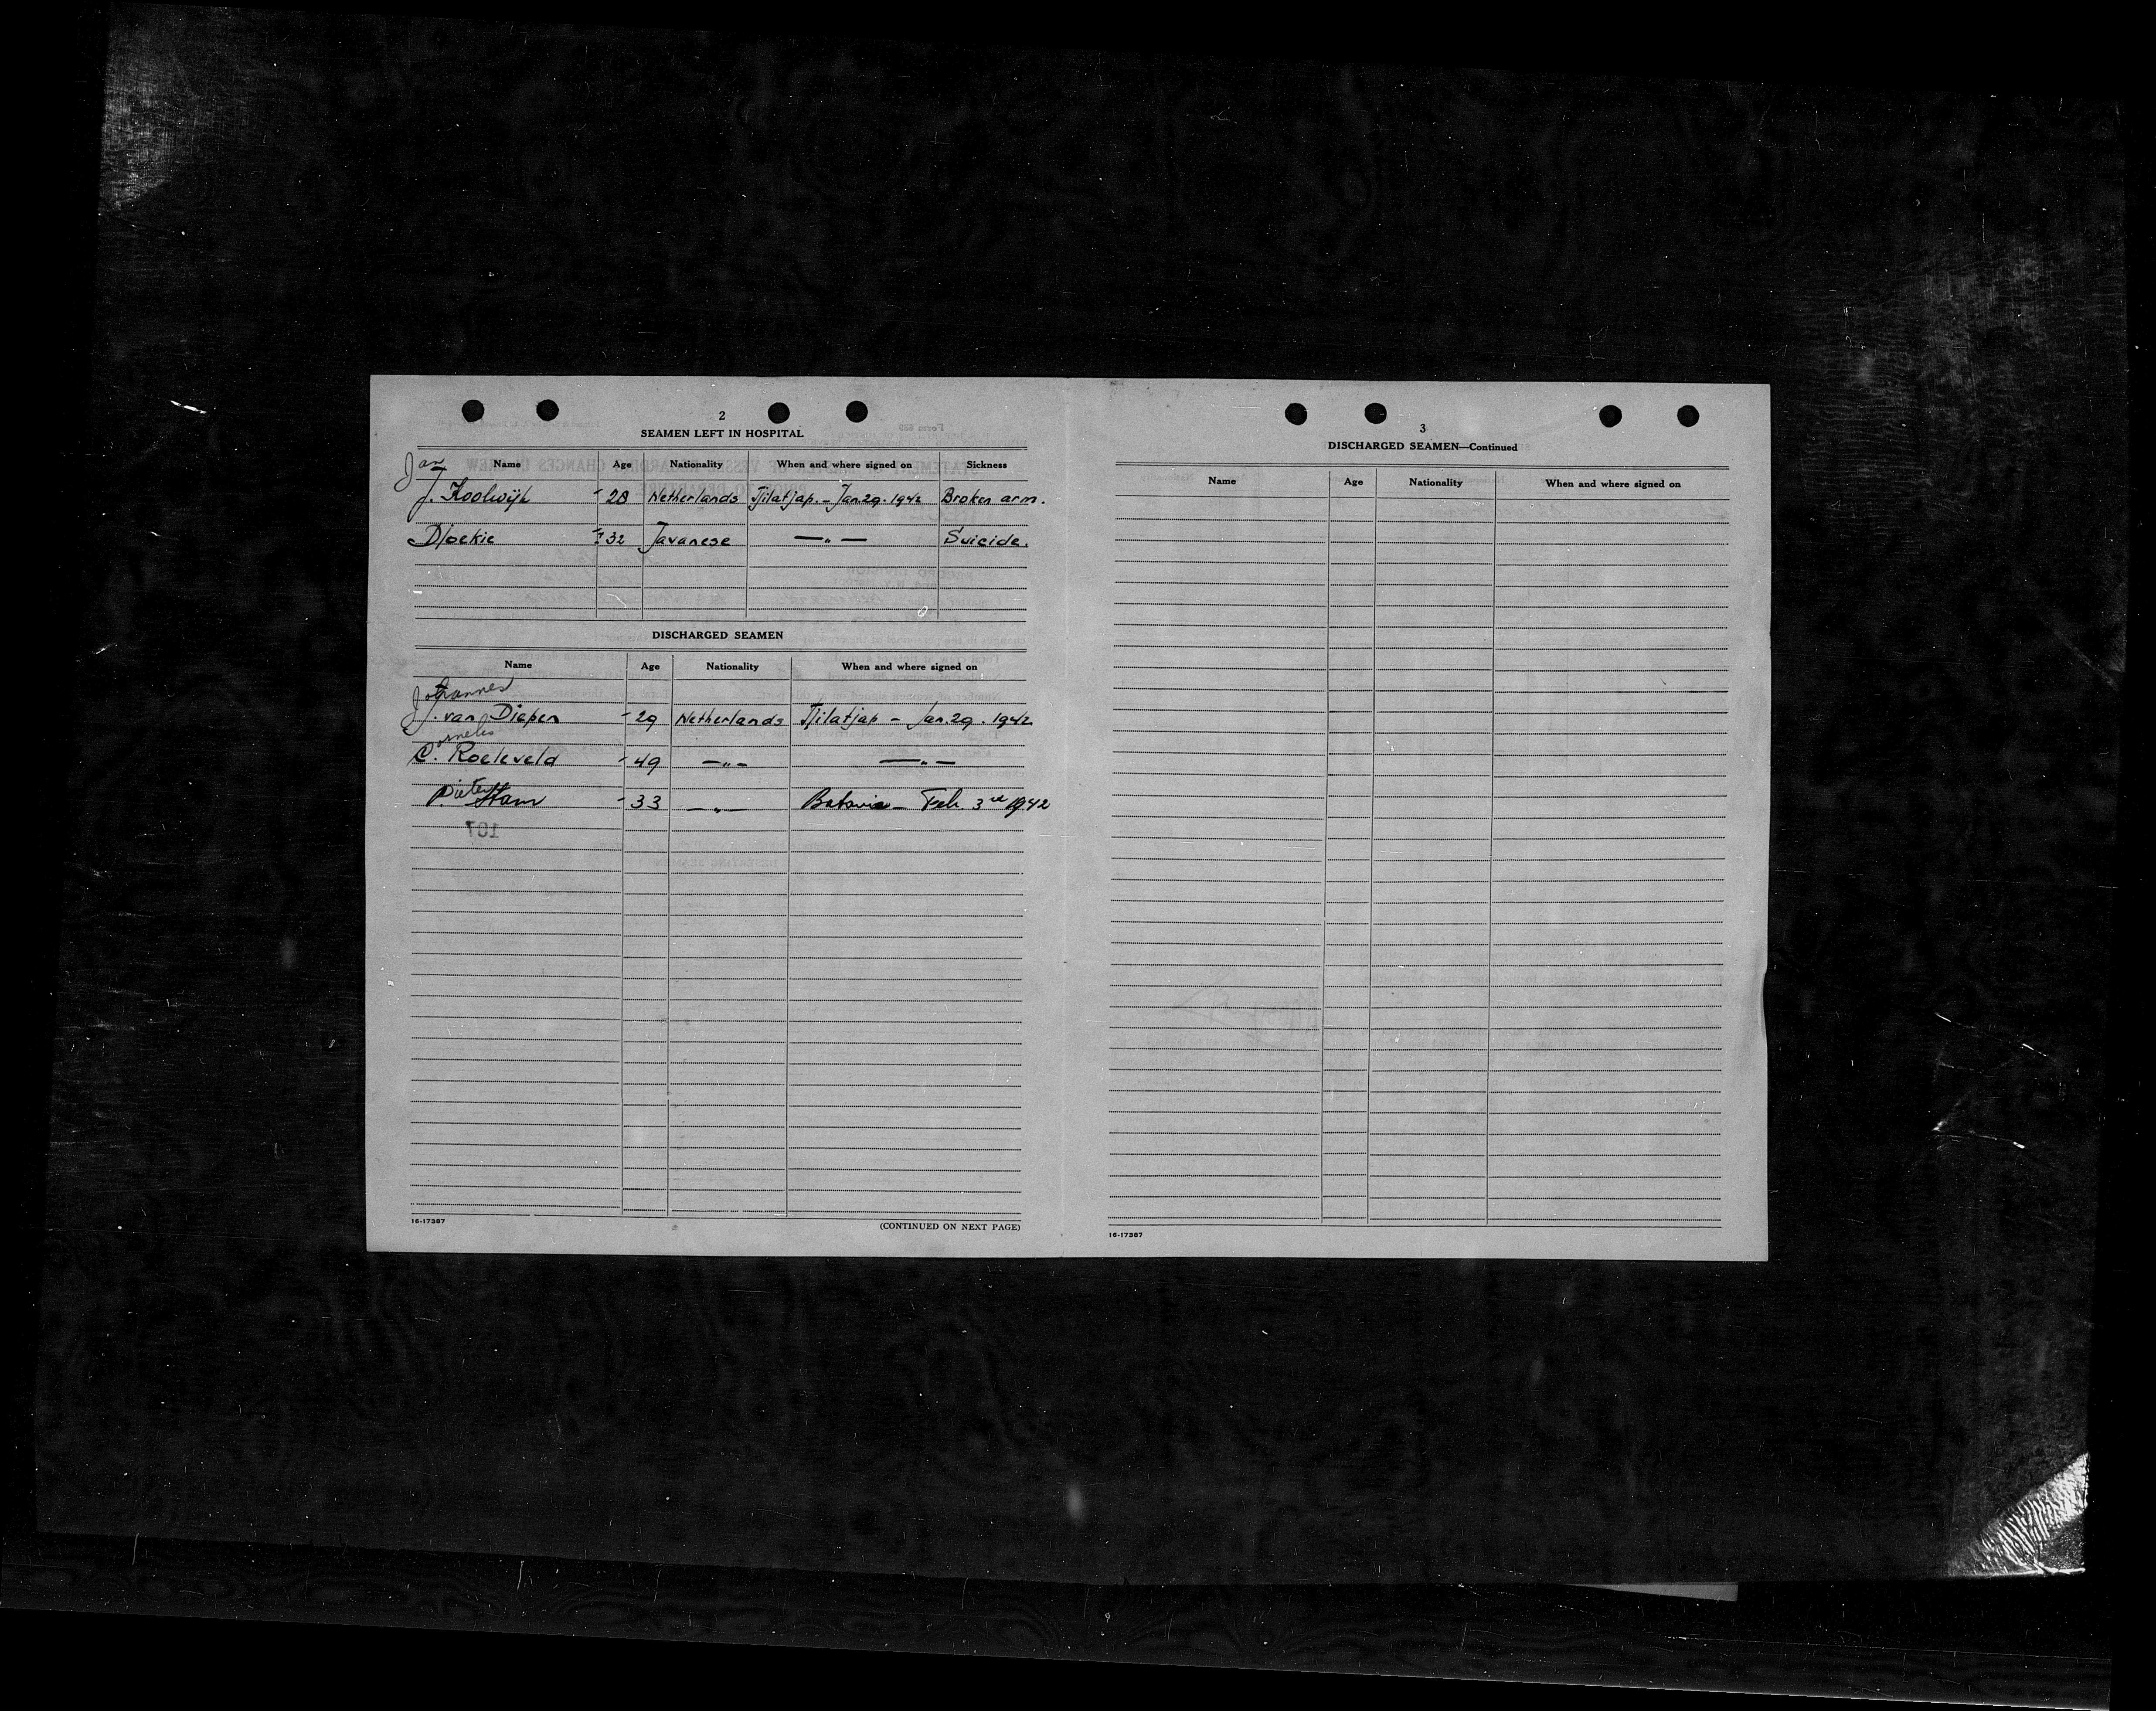 2
SEAMEN LEFT IN HOSPITAL
Name Age Nationality When and where signed on Sickness
Jan
J. Koolwijk - 28 Netherlands Tjilatjap. - Jan. 29. 1942 Broken arm.
Djoekie - 32 Javanese — " — Suicide.
DISCHARGED SEAMEN
Name Age Nationality When and where signed on
Johannes
J. van Diepen - 29 Netherlands Tjilatjap - Jan. 29. 1942
ornelis
C. Roeleveld - 49 — " — — " —
Pieter
P. Stam - 33 — " — Batavia - Feb. 3rd 1942
107
16-17387
(CONTINUED ON NEXT PAGE)
3
DISCHARGED SEAMEN—Continued
Name Age Nationality When and where signed on
16-17387